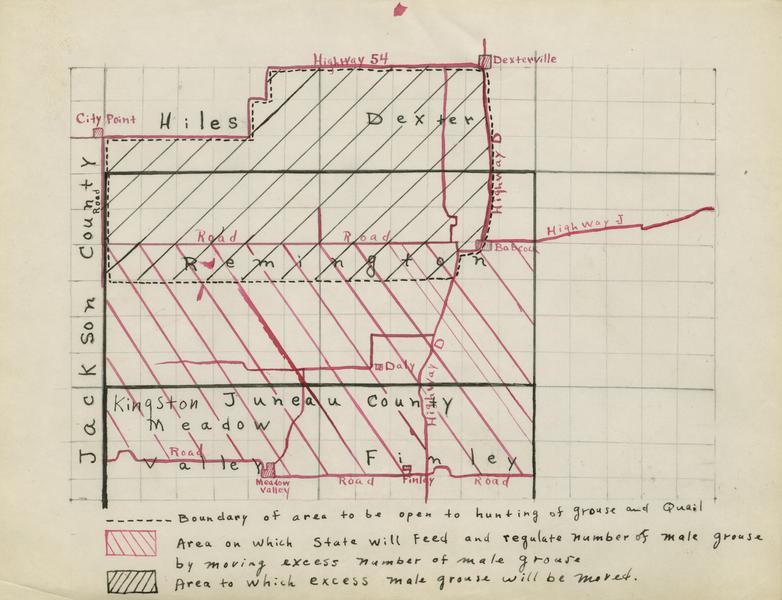 Highway 54
Dexterville
City Point
Hiles
Dexter
Highway D
Road
Highway J
Road
Road
Babcock
Remington
Jackson County
Daly
Highway D
Kingston
Juneau County
Meadow
Valley
Road
Finley
Meadow
Valley
Road
Finley
Road
Boundary of area to be open to hunting of grouse and Quail
Area on which State will Feed and regulate number of male grouse
by moving excess number of male grouse
Area to which excess male grouse will be moved.